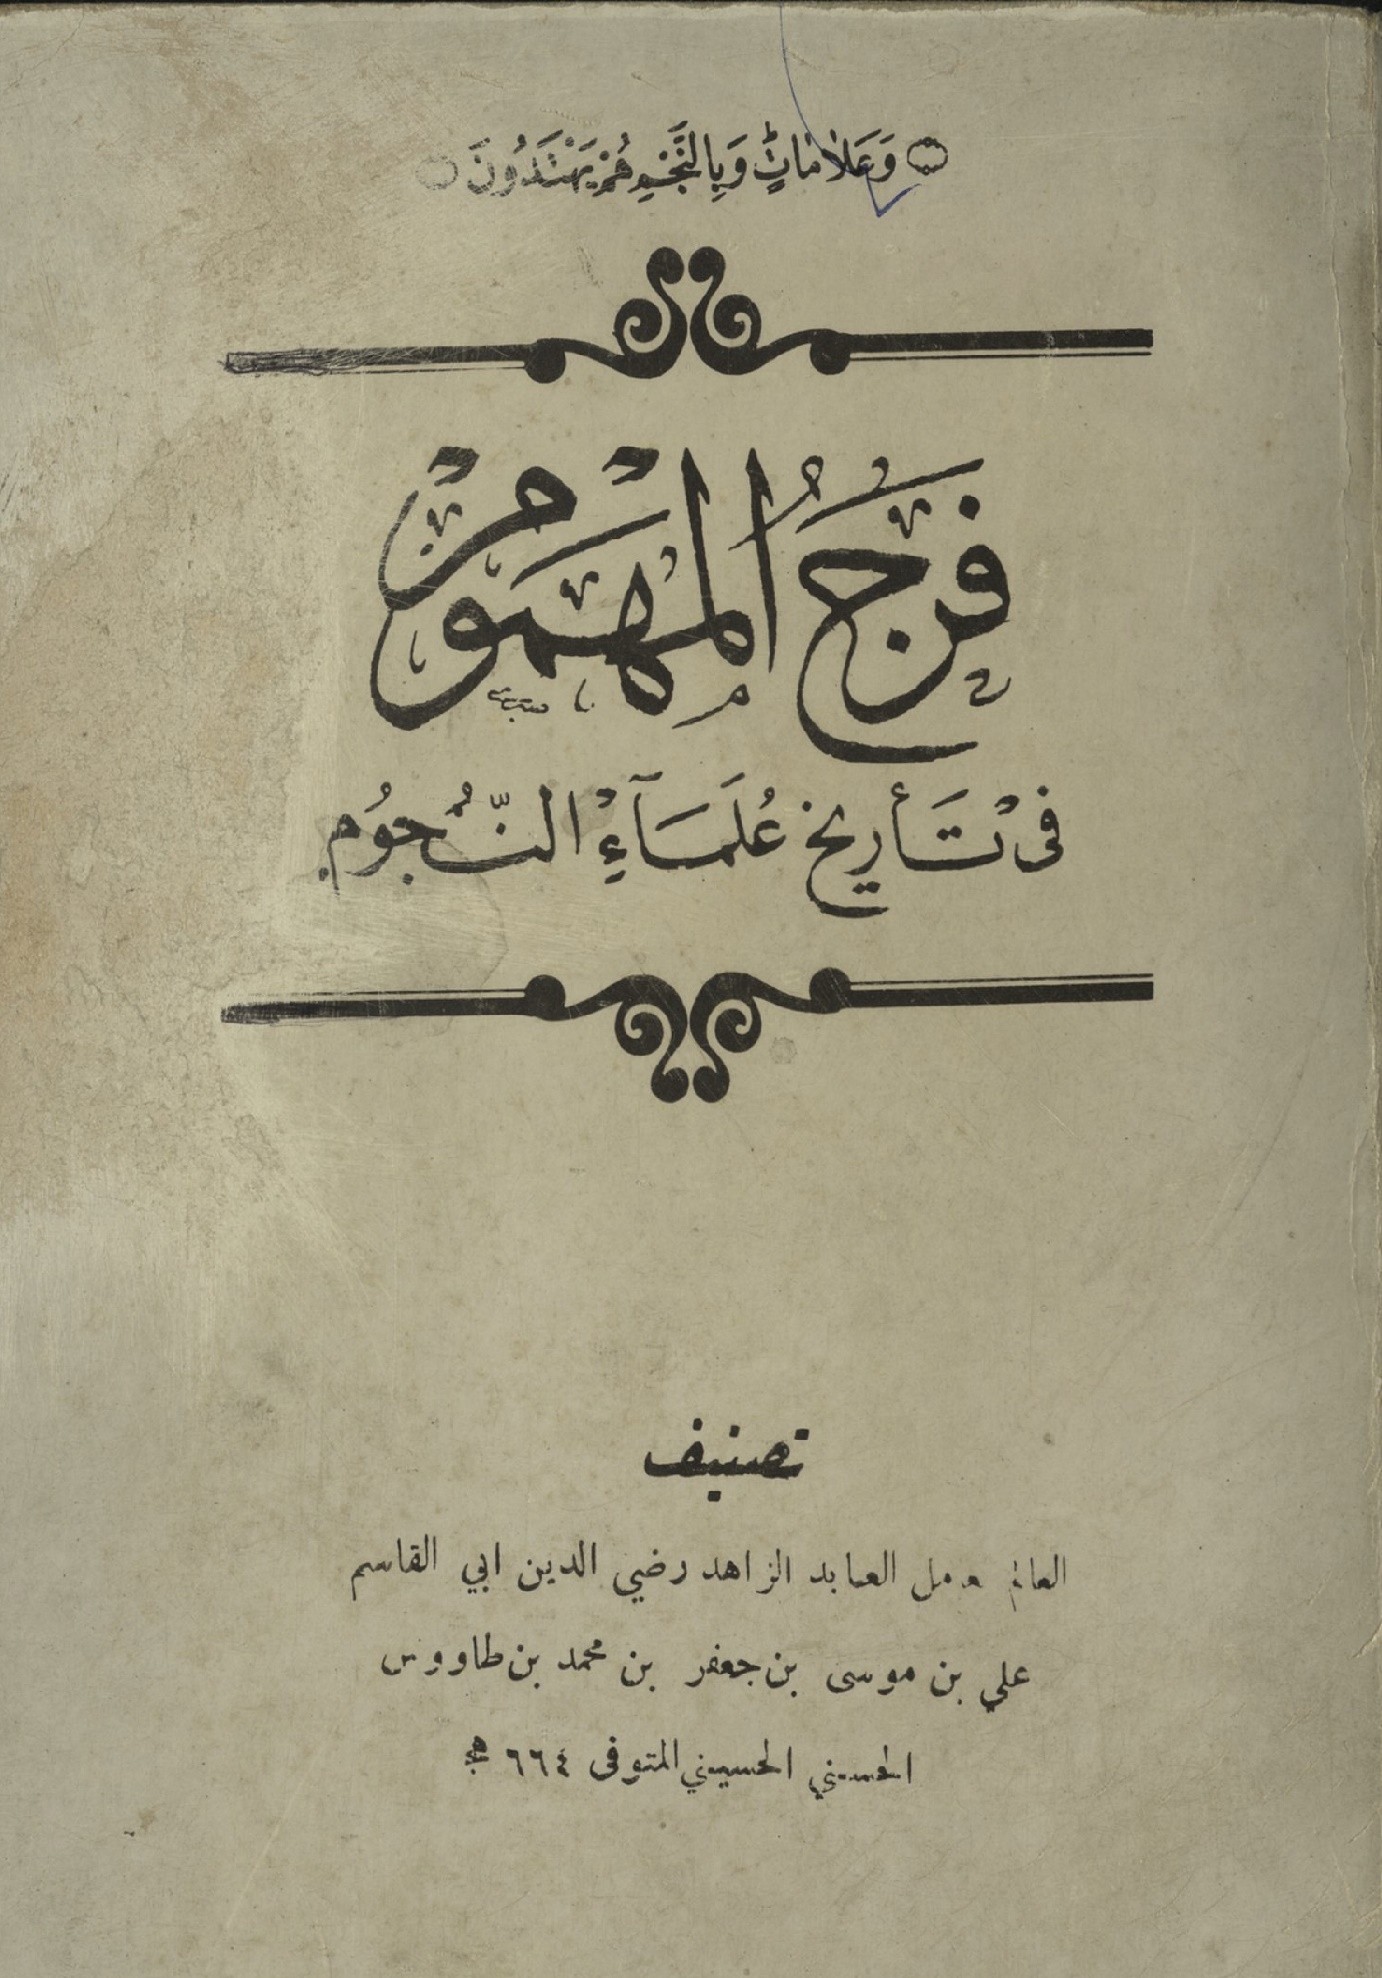 وَعَلاٰمٰاتٍ وَبِالنَّجْمِ هُمْ يَهْتَدُونَ
فَرَجُ الْمَهْمُوْمْ
فى تَأريخ عُلَمَآءِ النّجُوُم
تصنيف
العالم العابد الزاهد رضي الدين ابي القاسم
علي بن موسى بن جعفر بن محمد بن طاووس
الحسني الحسيني المتوفى ٦٦٤ هج